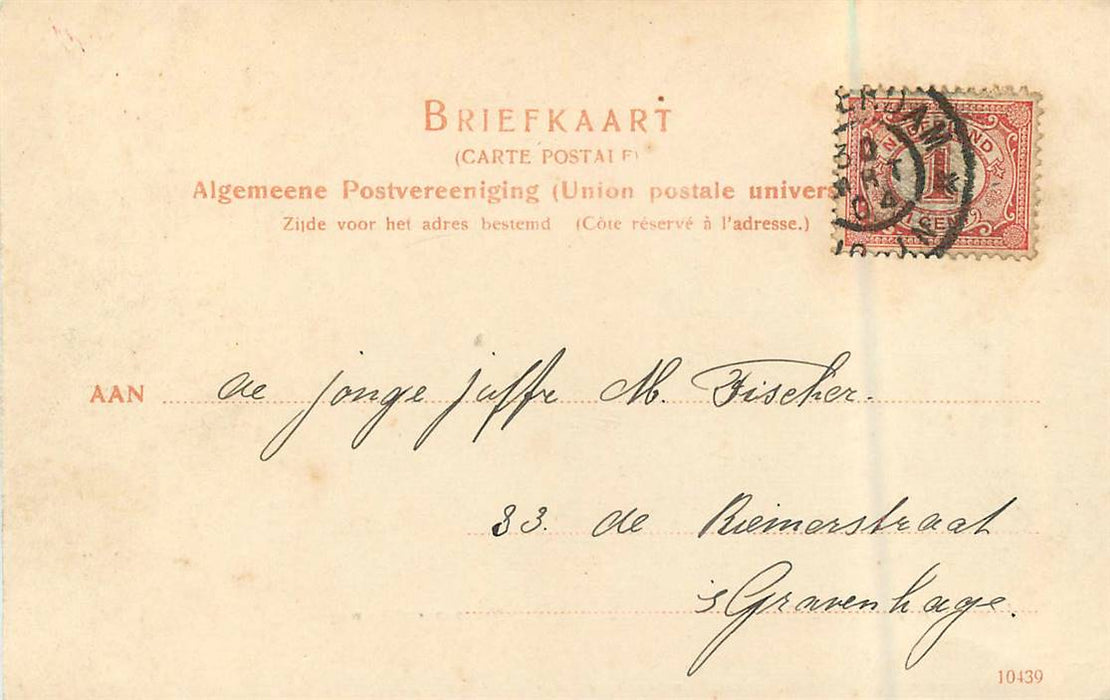 BRIEFKAART
(CARTE POSTALE)
Algemeene Postvereeniging (Union postale univers
Zijde voor het adres bestemd (Côte réservé à l'adresse.)
ERDAM
NEDERLAND
1
CENT
AAN de jonge juffr M. Fischer.
33. de Riemerstraat
'sGravenhage.
10439